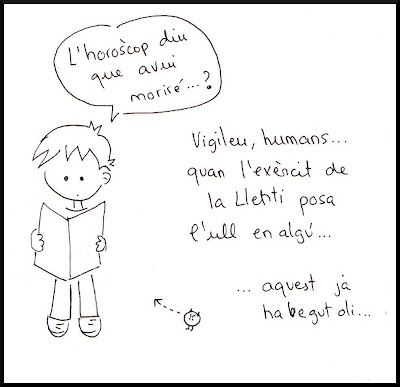 L'horòscop diu
que avui
moriré...?
Vigileu, humans...
quan l'exèrcit de
la Llehti posa
l'ull en algú...
... aquest jà
ha begut oli...